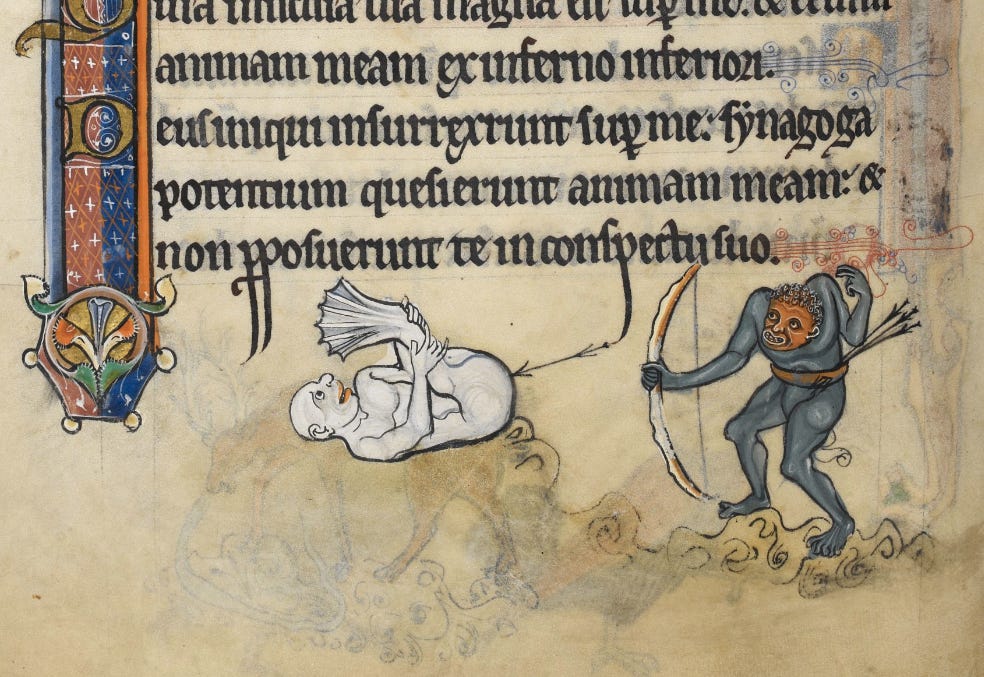 animam meam ex inferno inferiori.
Deus iniqui insurrexerunt sup me: synagoga
potentium quesierunt animam meam: &
non pposuerunt te in conspectu suo.